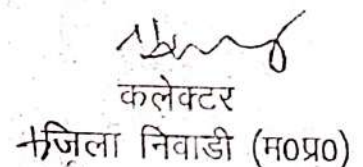 कलेक्टर
जिला निवाडी (म०प्र०)